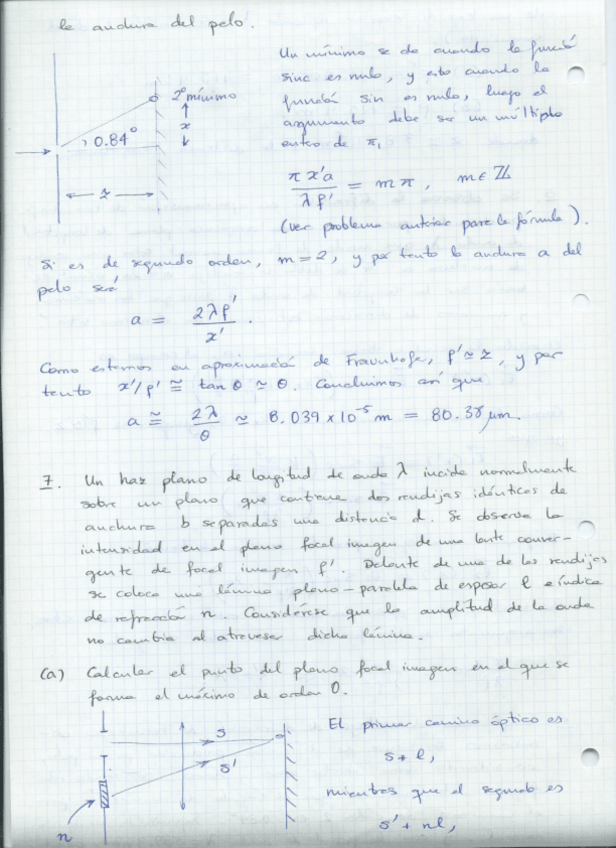 la anchura del pelo.
Un mínimo se da cuando la función
sinc es nula, y esto cuando la
función sin es nula, luego el
argumento debe ser un múltiplo
entero de π,
2º mínimo
x
0.84°
z
π x' a / λ f' = m π, m ∈ ℤ
(ver problema anterior para la fórmula).
Si es de segundo orden, m = 2, y por tanto la anchura a del
pelo será
a = 2 λ f' / x' .
Como estamos en aproximación de Fraunhofer, f' ≃ z, y por
tanto x'/f' ≅ tan θ ≃ θ. Concluimos así que
a ≅ 2λ / θ ≃ 8.039 × 10⁻⁵ m = 80.38 μm.
7. Un haz plano de longitud de onda λ incide normalmente
sobre un plano que contiene dos rendijas idénticas de
anchura b separadas una distancia d. Se observa la
intensidad en el plano focal imagen de una lente conver-
gente de focal imagen f'. Delante de una de las rendijas
se coloca una lámina plano-paralela de espesor l e índice
de refracción n. Considérese que la amplitud de la onda
no cambia al atravesar dicha lámina.
(a) Calcular el punto del plano focal imagen en el que se
forma el máximo de orden 0.
s
s'
n
El primer camino óptico es
s + l,
mientras que el segundo es
s' + nl,